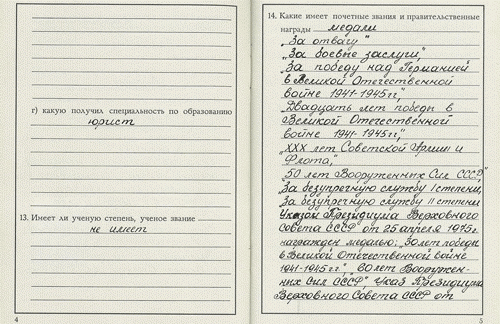 г) какую получил специальность по образованию
юрист
13. Имеет ли ученую степень, ученое звание
не имеет
4
14. Какие имеет почетные звания и правительственные
награды медали
„За отвагу"
„За боевые заслуги"
„За победу над Германией
в Великой Отечественной
войне 1941-1945гг",
„Двадцать лет победы в
Великой Отечественной
войне 1941-1945гг",
„XXX лет Советской Армии и
Флота",
„50 лет Вооруженных Сил СССР"
„За безупречную службу I степени,
За безупречную службу II степени
Указом Президиума Верховного
Совета СССР от 25 апреля 1975г.
награжден медалью: „30 лет победы
в Великой Отечественной войне
1941-1945гг", „60 лет Вооружен-
ных Сил СССР", Указ Президиума
Верховного Совета СССР от
5